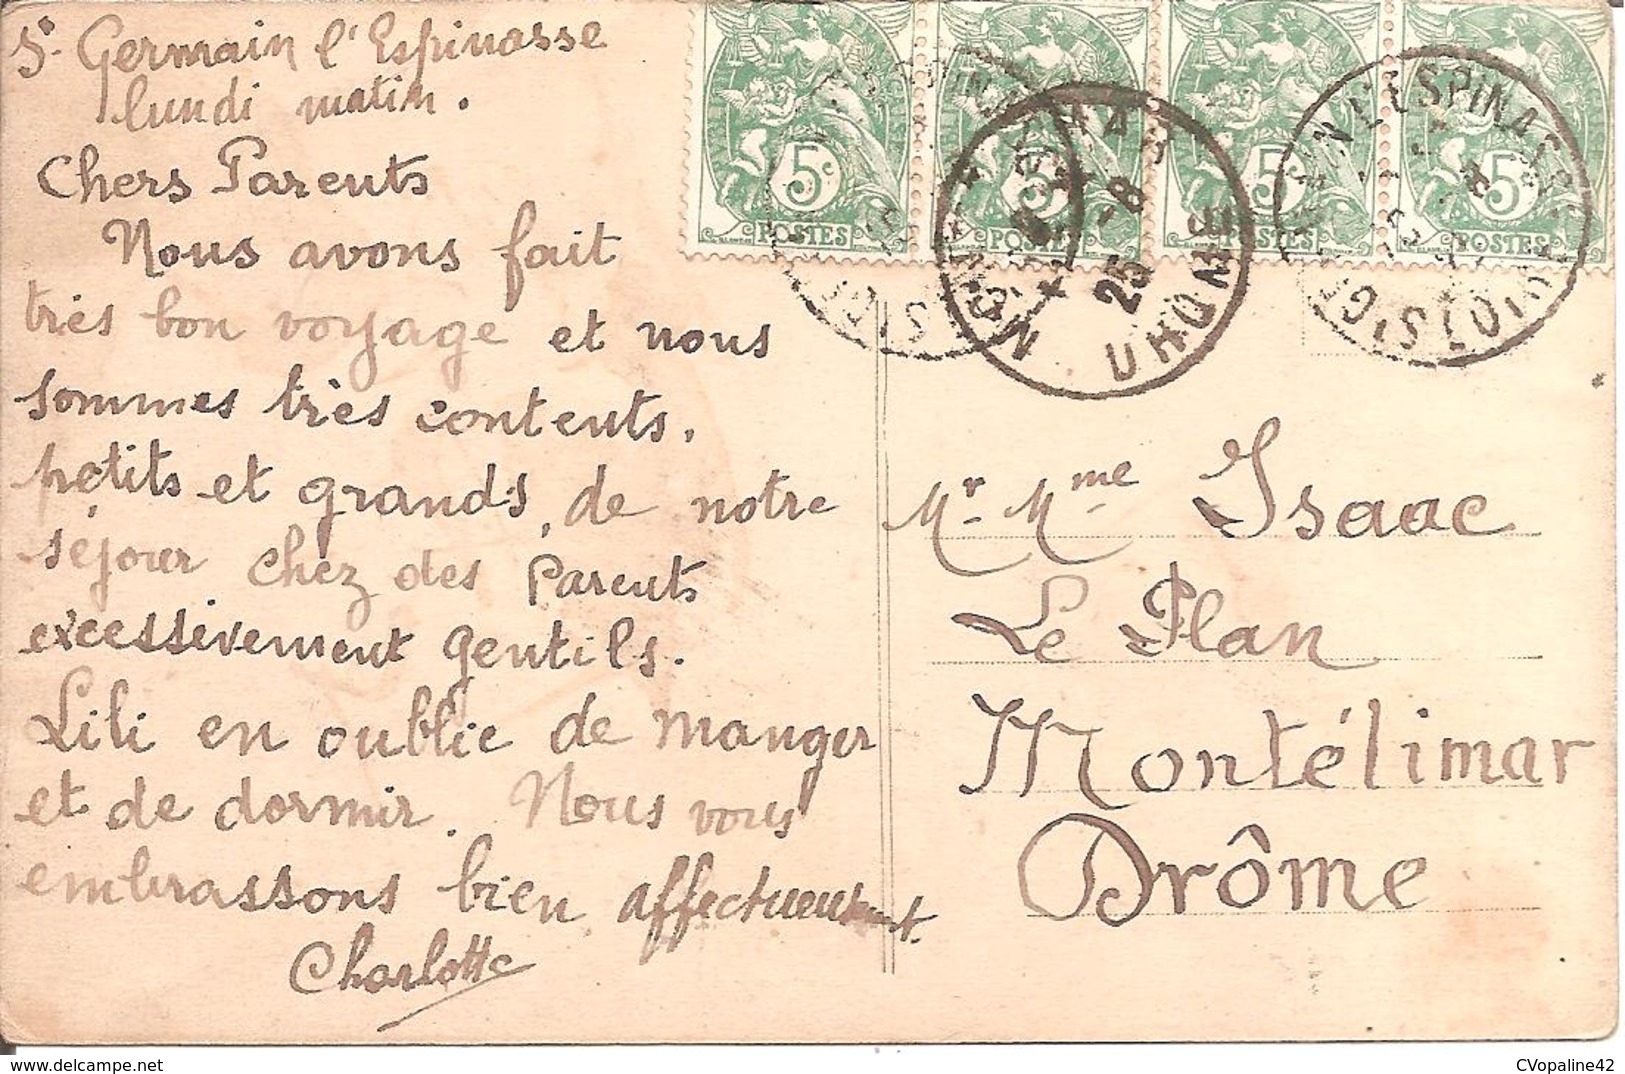 St. Germain l'Espinasse
lundi matin.
Chers Parents
Nous avons fait
très bon voyage et nous
sommes très contents,
petits et grands, de notre
séjour chez des Parents
excessivement gentils.
Lili en oublie de manger
et de dormir. Nous vous
embrassons bien affectueusement.
Charlotte
5c 5c 5c 5c
POSTES POSTES POSTES POSTES
25
-8
L'ESPINASSE
Mr. Mme Isaac
Le Plan
Montélimar
Drôme
CVopaline42